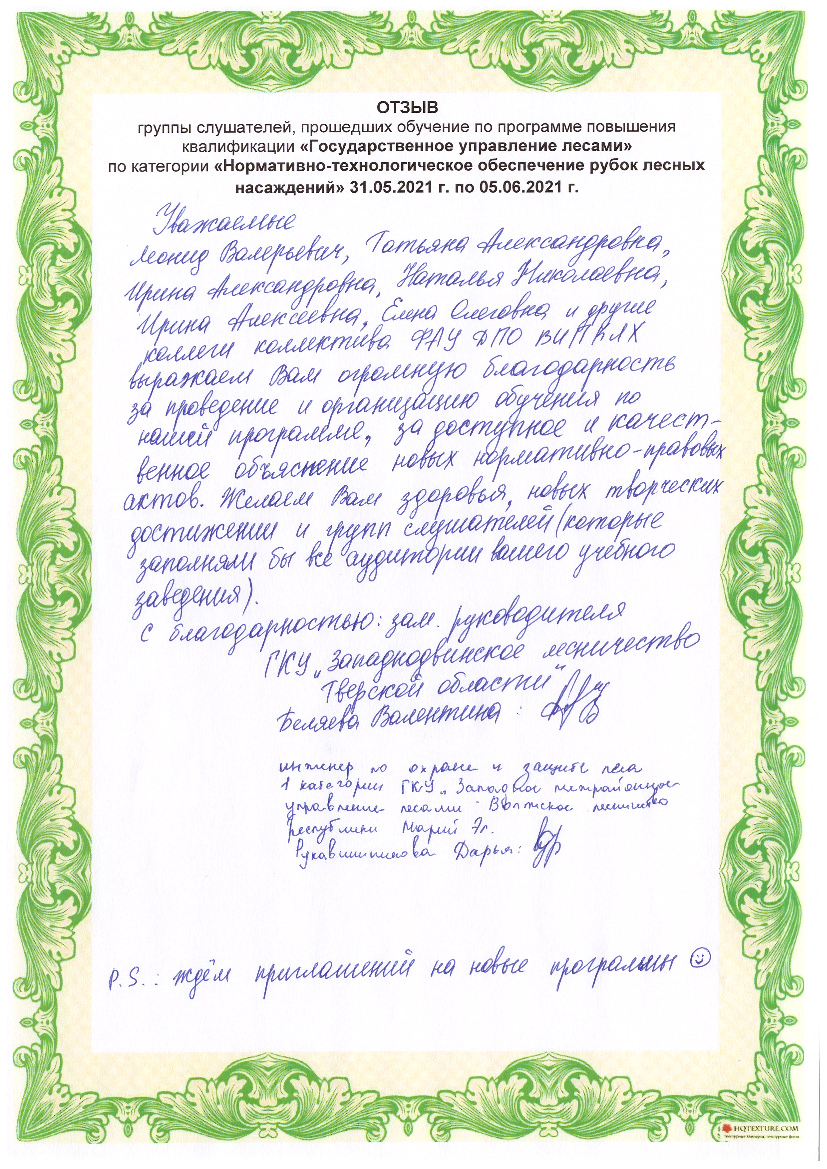 ОТЗЫВ
группы слушателей, прошедших обучение по программе повышения
квалификации «Государственное управление лесами»
по категории «Нормативно-технологическое обеспечение рубок лесных
насаждений» 31.05.2021 г. по 05.06.2021 г.
Уважаемые
Леонид Валерьевич, Татьяна Александровна,
Ирина Александровна, Наталья Николаевна,
Ирина Алексеевна, Елена Олеговна и другие
коллеги коллектива ФАУ ДПО ВИПКЛХ
выражаем Вам огромную благодарность
за проведение и организацию обучения по
нашей программе, за доступное и качест-
венное объяснение новых нормативно-правовых
актов. Желаем Вам здоровья, новых творческих
достижений и групп слушателей (которые
заполняли бы все аудитории вашего учебного
заведения).
С благодарностью: зам. руководителя
ГКУ „Западнодвинское лесничество
Тверской области"
Беляева Валентина :
инженер по охране и защите леса
1 категории ГКУ „Западное межрайонное
управление лесами" Волжское лесничество
республики Марий Эл.
Рукавишникова Дарья:
P.S.: ждём приглашений на новые программы ☺
HQTEXTURE.COM